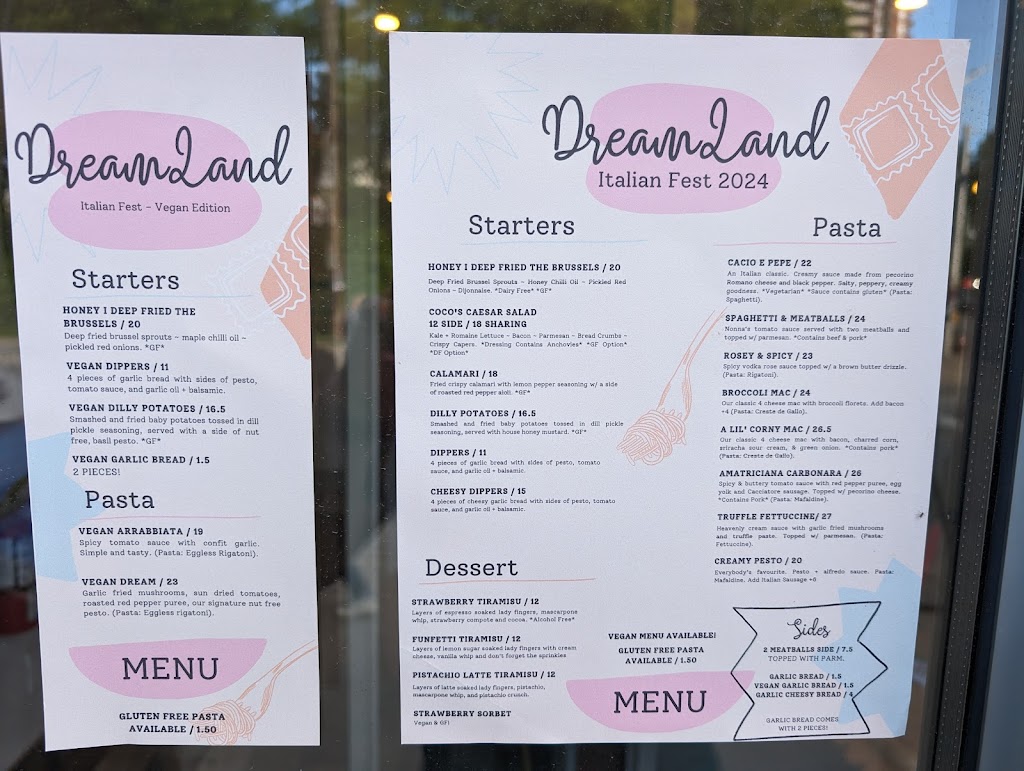 DreamLand
Italian Fest - Vegan Edition
Starters
HONEY I DEEP FRIED THE
BRUSSELS / 20
Deep fried brussel sprouts ~ maple chilli oil ~
pickled red onions. *GF*
VEGAN DIPPERS / 11
4 pieces of garlic bread with sides of pesto,
tomato sauce, and garlic oil + balsamic.
VEGAN DILLY POTATOES / 16.5
Smashed and fried baby potatoes tossed in dill
pickle seasoning, served with a side of nut
free, basil pesto. *GF*
VEGAN GARLIC BREAD / 1.5
2 PIECES!
Pasta
VEGAN ARRABBIATA / 19
Spicy tomato sauce with confit garlic.
Simple and tasty. (Pasta: Eggless Rigatoni).
VEGAN DREAM / 23
Garlic fried mushrooms, sun dried tomatoes,
roasted red pepper puree, our signature nut free
pesto. (Pasta: Eggless rigatoni).
MENU
GLUTEN FREE PASTA
AVAILABLE / 1.50
DreamLand
Italian Fest 2024
Starters
HONEY I DEEP FRIED THE BRUSSELS / 20
Deep Fried Brussel Sprouts ~ Honey Chilli Oil ~ Pickled Red
Onions ~ Dijonnaise. *Dairy Free* *GF*
COCO'S CAESAR SALAD
12 SIDE / 18 SHARING
Kale + Romaine Lettuce ~ Bacon ~ Parmesan ~ Bread Crumbs ~
Crispy Capers. *Dressing Contains Anchovies* *GF Option*
*DF Option*
CALAMARI / 18
Fried crispy calamari with lemon pepper seasoning w/ a side
of roasted red pepper aioli. *GF*
DILLY POTATOES / 16.5
Smashed and fried baby potatoes tossed in dill pickle
seasoning, served with house honey mustard. *GF*
DIPPERS / 11
4 pieces of garlic bread with sides of pesto, tomato
sauce, and garlic oil + balsamic.
CHEESY DIPPERS / 15
4 pieces of cheesy garlic bread with sides of pesto, tomato
sauce, and garlic oil + balsamic.
Dessert
STRAWBERRY TIRAMISU / 12
Layers of espresso soaked lady fingers, mascarpone
whip, strawberry compote and cocoa. *Alcohol Free*
FUNFETTI TIRAMISU / 12
Layers of lemon sugar soaked lady fingers with cream
cheese, vanilla whip and don't forget the sprinkles
PISTACHIO LATTE TIRAMISU / 12
Layers of latte soaked lady fingers, pistachio,
mascarpone whip, and pistachio crunch.
STRAWBERRY SORBET
Vegan & GF!
Pasta
CACIO E PEPE / 22
An Italian classic. Creamy sauce made from pecorino
Romano cheese and black pepper. Salty, peppery, creamy
goodness. *Vegetarian* *Sauce contains gluten* (Pasta:
Spaghetti).
SPAGHETTI & MEATBALLS / 24
Nonna's tomato sauce served with two meatballs and
topped w/ parmesan. *Contains beef & pork*
ROSEY & SPICY / 23
Spicy vodka rose sauce topped w/ a brown butter drizzle.
(Pasta: Rigatoni).
BROCCOLI MAC / 24
Our classic 4 cheese mac with broccoli florets. Add bacon
+4 (Pasta: Creste de Gallo).
A LIL' CORNY MAC / 26.5
Our classic 4 cheese mac with bacon, charred corn,
sriracha sour cream, & green onion. *Contains pork*
(Pasta: Creste de Gallo).
AMATRICIANA CARBONARA / 26
Spicy & buttery tomato sauce with red pepper puree, egg
yolk and Cacciatore sausage. Topped w/ pecorino cheese.
*Contains Pork* (Pasta: Mafaldine).
TRUFFLE FETTUCCINE/ 27
Heavenly cream sauce with garlic fried mushrooms
and truffle paste. Topped w/ parmesan. (Pasta:
Fettuccine).
CREAMY PESTO / 20
Everybody's favourite. Pesto + alfredo sauce. Pasta:
Mafaldine. Add Italian Sausage +6
VEGAN MENU AVAILABLE!
GLUTEN FREE PASTA
AVAILABLE / 1.50
MENU
Sides
2 MEATBALLS SIDE / 7.5
TOPPED WITH PARM.
GARLIC BREAD / 1.5
VEGAN GARLIC BREAD / 1.5
GARLIC CHEESY BREAD / 4
GARLIC BREAD COMES
WITH 2 PIECES!